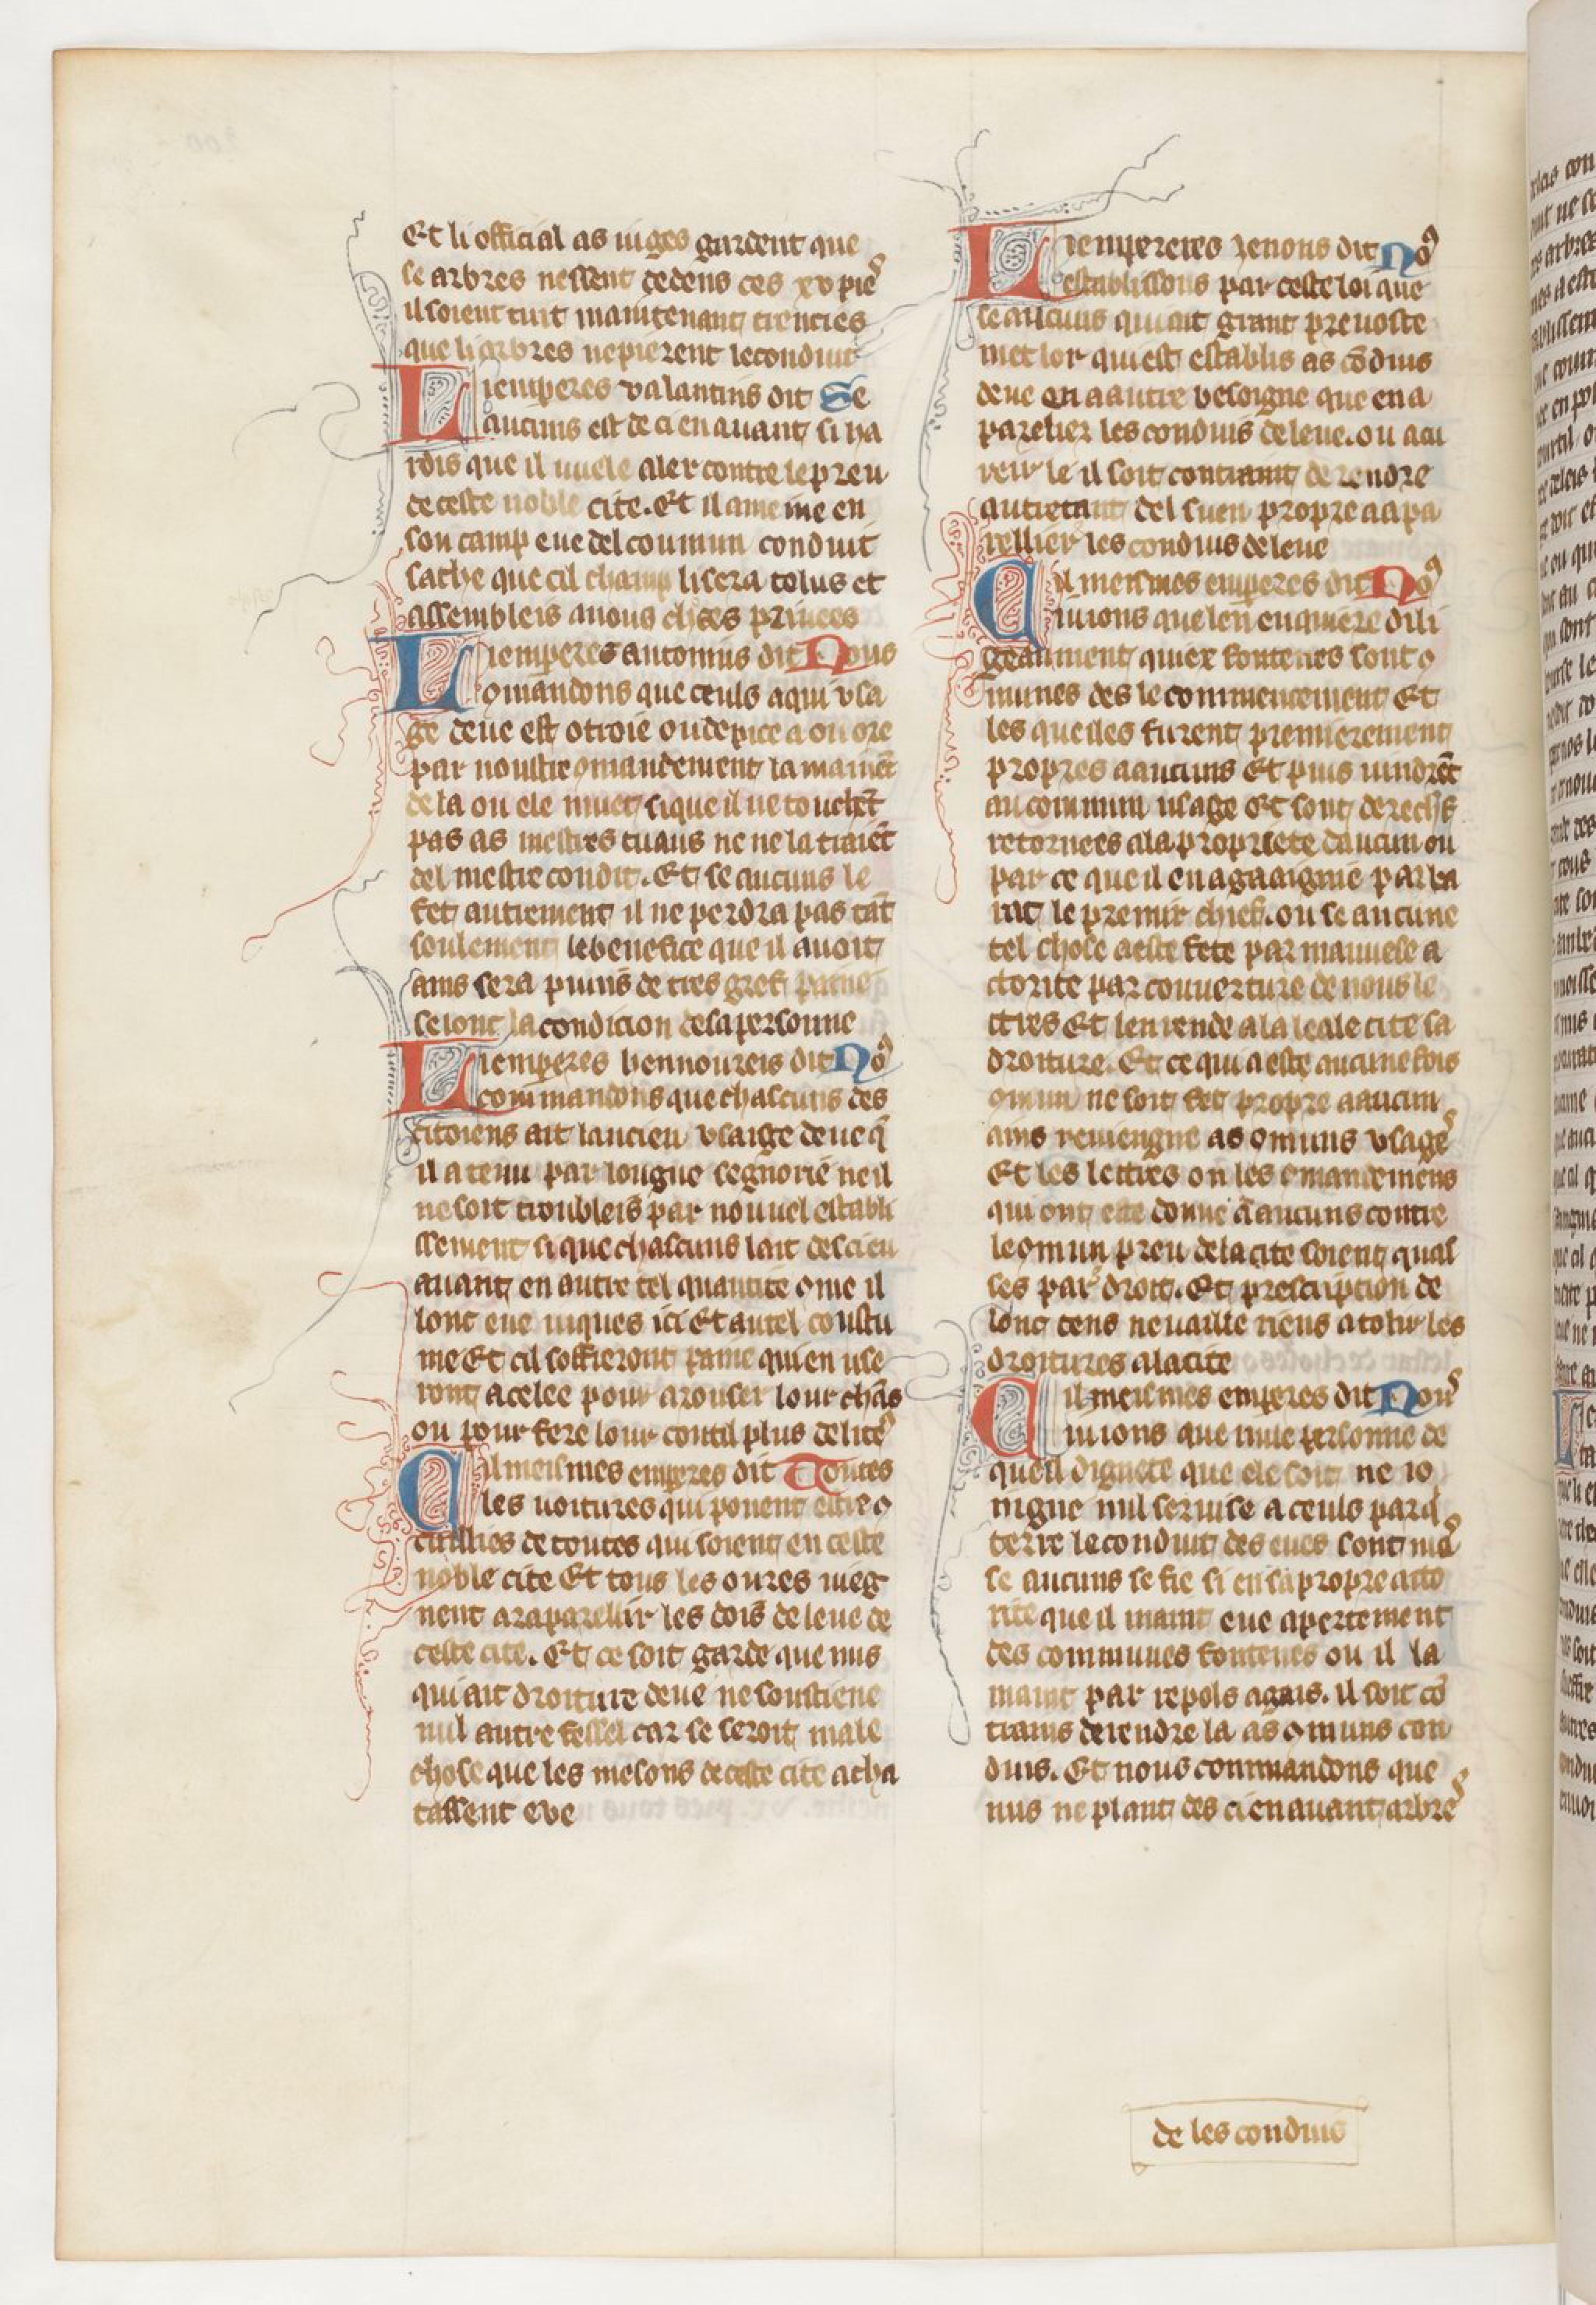 Et li official as iuges gardent que
se arbres nessent dedens ces xv pieˢ
il soient tuit maintenant trenties
que li arbres nepierent leconduit
Liemperes valantins dit Se
aucuns est de ci en auant si ha
rdis que il uuele aler contre le preu
de ceste noble cite. Et il ameine en
son camp eue del coumun conduit
sache que cil champ li sera tolus et
assembleis a nous choses priuees
Liemperes antonius dit Nous
ꝯmandons que ceuls a qui vsa
ge deue est otroie ou depite a ou ore
par noustre ꝯmandement la mainēt
de la ou ele muet si que il ne touchēt
pas as mestres tuaus ne ne la traiēt
del mestre condit. Et se aucuns le
fet autrement il ne perdra pas tāt
soulement le benefice que il auoit
ains sera punis de tres gref paine
selonc la condicion de sa personne
Liemperes bennoureis dit Noꝰ
commandons que chascuns des
citoiens ait lancien vsaige deue q̄
il a tenu par longue segnorie ne il
ne soit troubleis par nouuel establi
ssement si que chascuns lait desci en
auant en autre tel quantite ꝯme il
lont eue iuques ici Et autel coustu
me Et cil soffreront paine qui en use
ront a celee pour arouser lour chās
ou pour fere lour coutil plus deliteˢ
Cil meismes emperes dit Toutes
les uoitures qui pouent estre ꝯ
cuillies de toutes qui soient en ceste
noble cite Et tous les oures uieg
nent a raparellir les dois de leue de
ceste cite. Et ce soit garde que nus
qui ait droiture deue ne soustiene
nul autre fessel car se seroit male
chose que les mesons de ceste cite acha
tassent eve
Liempereres zenons dit Noꝰ
establissons par ceste loi que
se aucuns qui ait grant preuoste
met lor qui est establis as cōduis
deue en a autre besoigne que en a
parelier les conduis de leue. ou a cu
reir le il soit contraint de rendre
autretant del suen propre a apa
rellier les conduis de leue
Cil meismes emperes dit Noꝰ
iuions que len enquiere dili
geaument quiex fontenes sont ꝯ
munes des le commencement Et
les quelles furent premierement
propres a aucuns Et puis uindrēt
au commun usage Et sont derechef
retornees a la propriete daucun ou
par ce que il en a gaaignie par ba
rat le premir chief. ou se aucune
tel chose a este fete par mauuese a
ctorite par couuerture de nous le
ttres Et len rende a la leale cite sa
droiture. Et ce qui a este aucune fois
ꝯmun ne soit fet propre a aucun
ains reuiengne as ꝯmuns vsageˢ
Et les lettres ou les ꝯmandemens
qui ont este donne a aucuns contre
le ꝯmun preu de la cite soient quas
ses par droit. Et prescription de
lonc tens ne uaille riens a tolir les
droitures a la cite
Cil meismes emperes dit Nouˢ
iuions que nule personne de
quell dignete que ele soit ne io
nigne nul seruise a ceuls par q̄
terre le conduit des eues sont mdˢ
se aucuns se fie si en sa propre acto
rite que il maint eue apertement
des communes fontenes ou il la
maint par repols agais. il soit cō
trains de rendre la as ꝯmuns con
duis. Et nous commandons que
nus ne plant des ci en auant arbreˢ
de les conduis